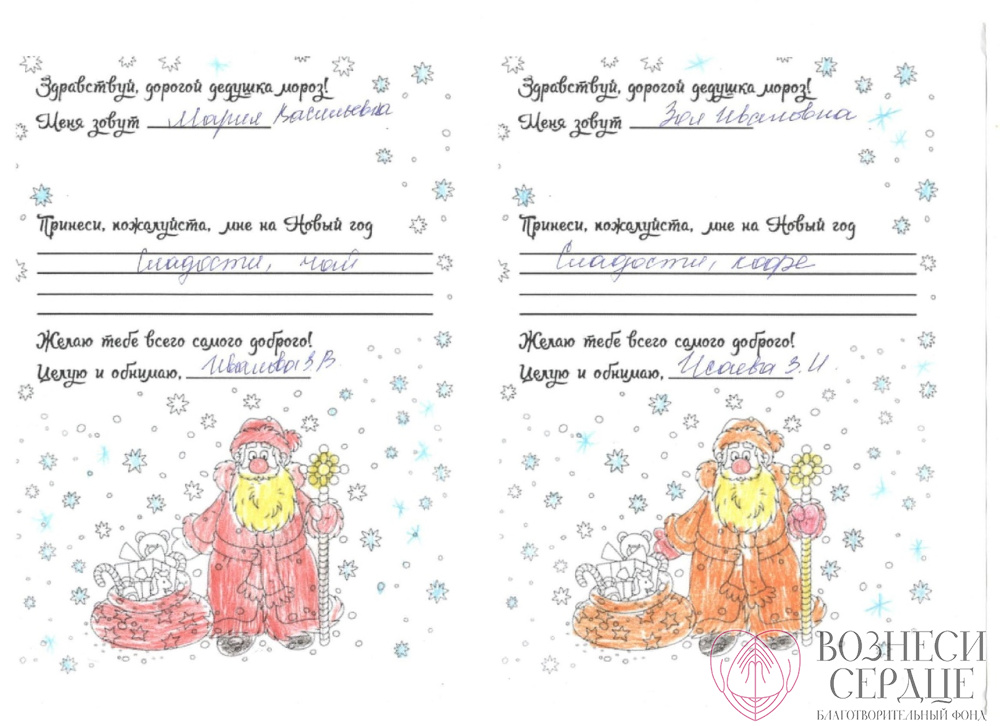 Здравствуй, дорогой дедушка мороз!
Меня зовут Мария Васильевна
Принеси, пожалуйста, мне на Новый год
Сладости, чай
Желаю тебе всего самого доброго!
Целую и обнимаю, Иванова З В
Здравствуй, дорогой дедушка мороз!
Меня зовут Зоя Ивановна
Принеси, пожалуйста, мне на Новый год
Сладости, кофе
Желаю тебе всего самого доброго!
Целую и обнимаю, Исаева З. И.
ВОЗНЕСИ
СЕРДЦЕ
БЛАГОТВОРИТЕЛЬНЫЙ ФОНД